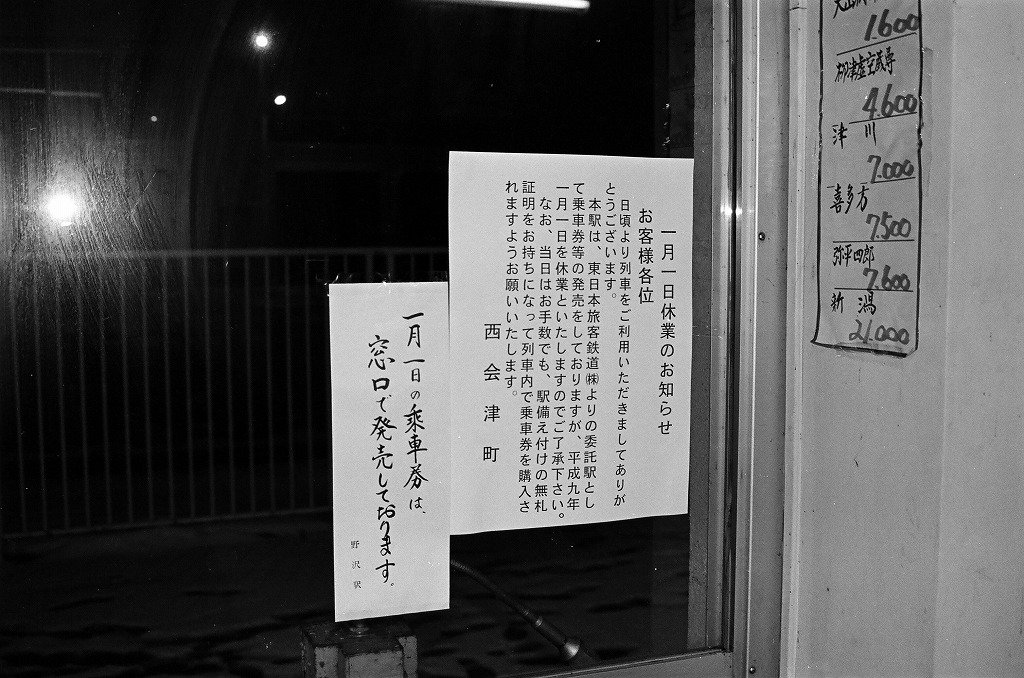 一月一日休業のお知らせ
お客様各位
日頃より列車をご利用いただきましてありが
とうございます。
本駅は、東日本旅客鉄道㈱よりの委託駅とし
て乗車券等の発売をしておりますが、平成九年
一月一日を休業といたしますのでご了承下さい。
なお、当日はお手数でも、駅備え付けの無札
証明をお持ちになって列車内で乗車券を購入さ
れますようお願いいたします。
西会津町
一月一日の乗車券は、
窓口で発売しております。
野沢駅
1.600
柳津虚空蔵尊
4.600
津川
7.000
喜多方
7.500
弥平四郎
7.600
新潟
21.000